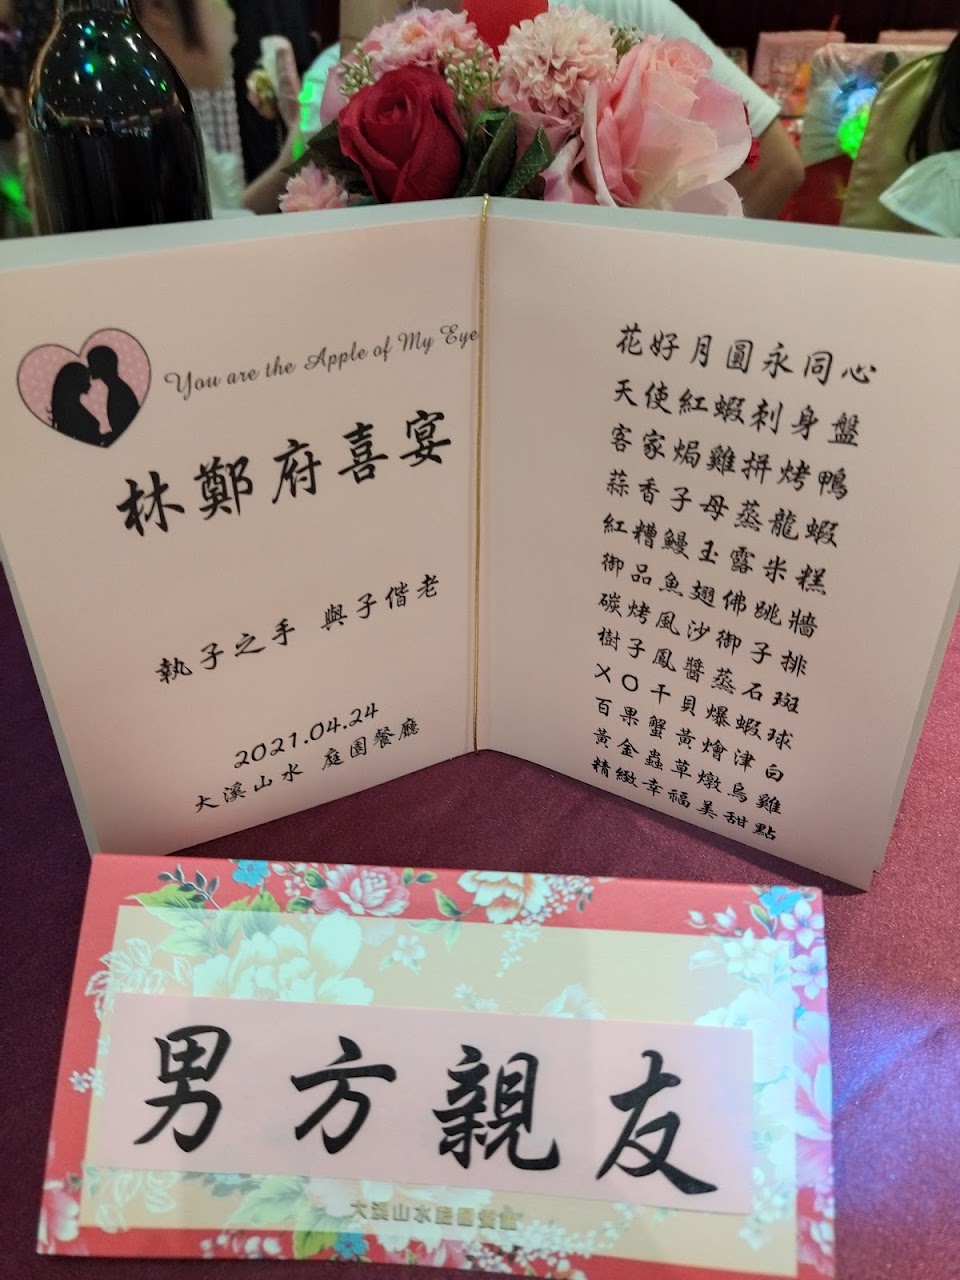 You are the Apple of My Eye
林鄭府喜宴
執子之手 與子偕老
2021.04.24
大溪山水 庭園餐廳
花好月圓永同心
天使紅蝦刺身盤
客家焗雞拼烤鴨
蒜香子母蒸龍蝦
紅糟鰻玉露米糕
御品魚翅佛跳牆
碳烤風沙御子排
樹子鳳醬蒸石斑
XO干貝爆蝦球
百果蟹黃燴津白
黃金蟲草燉烏雞
精緻幸福美甜點
男方親友
大溪山水庭園餐廳